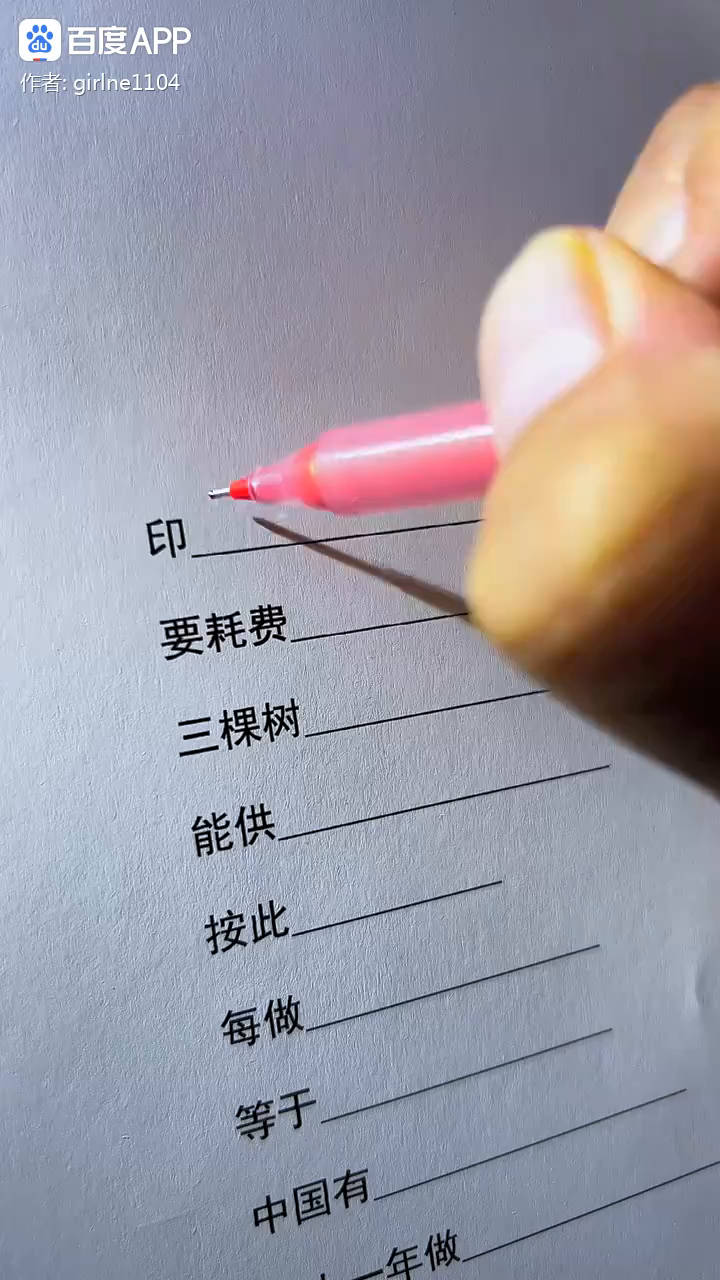 百度APP
作者: girlne1104
印
要耗费
三棵树
能供
按此
每做
等于
中国有
一年做